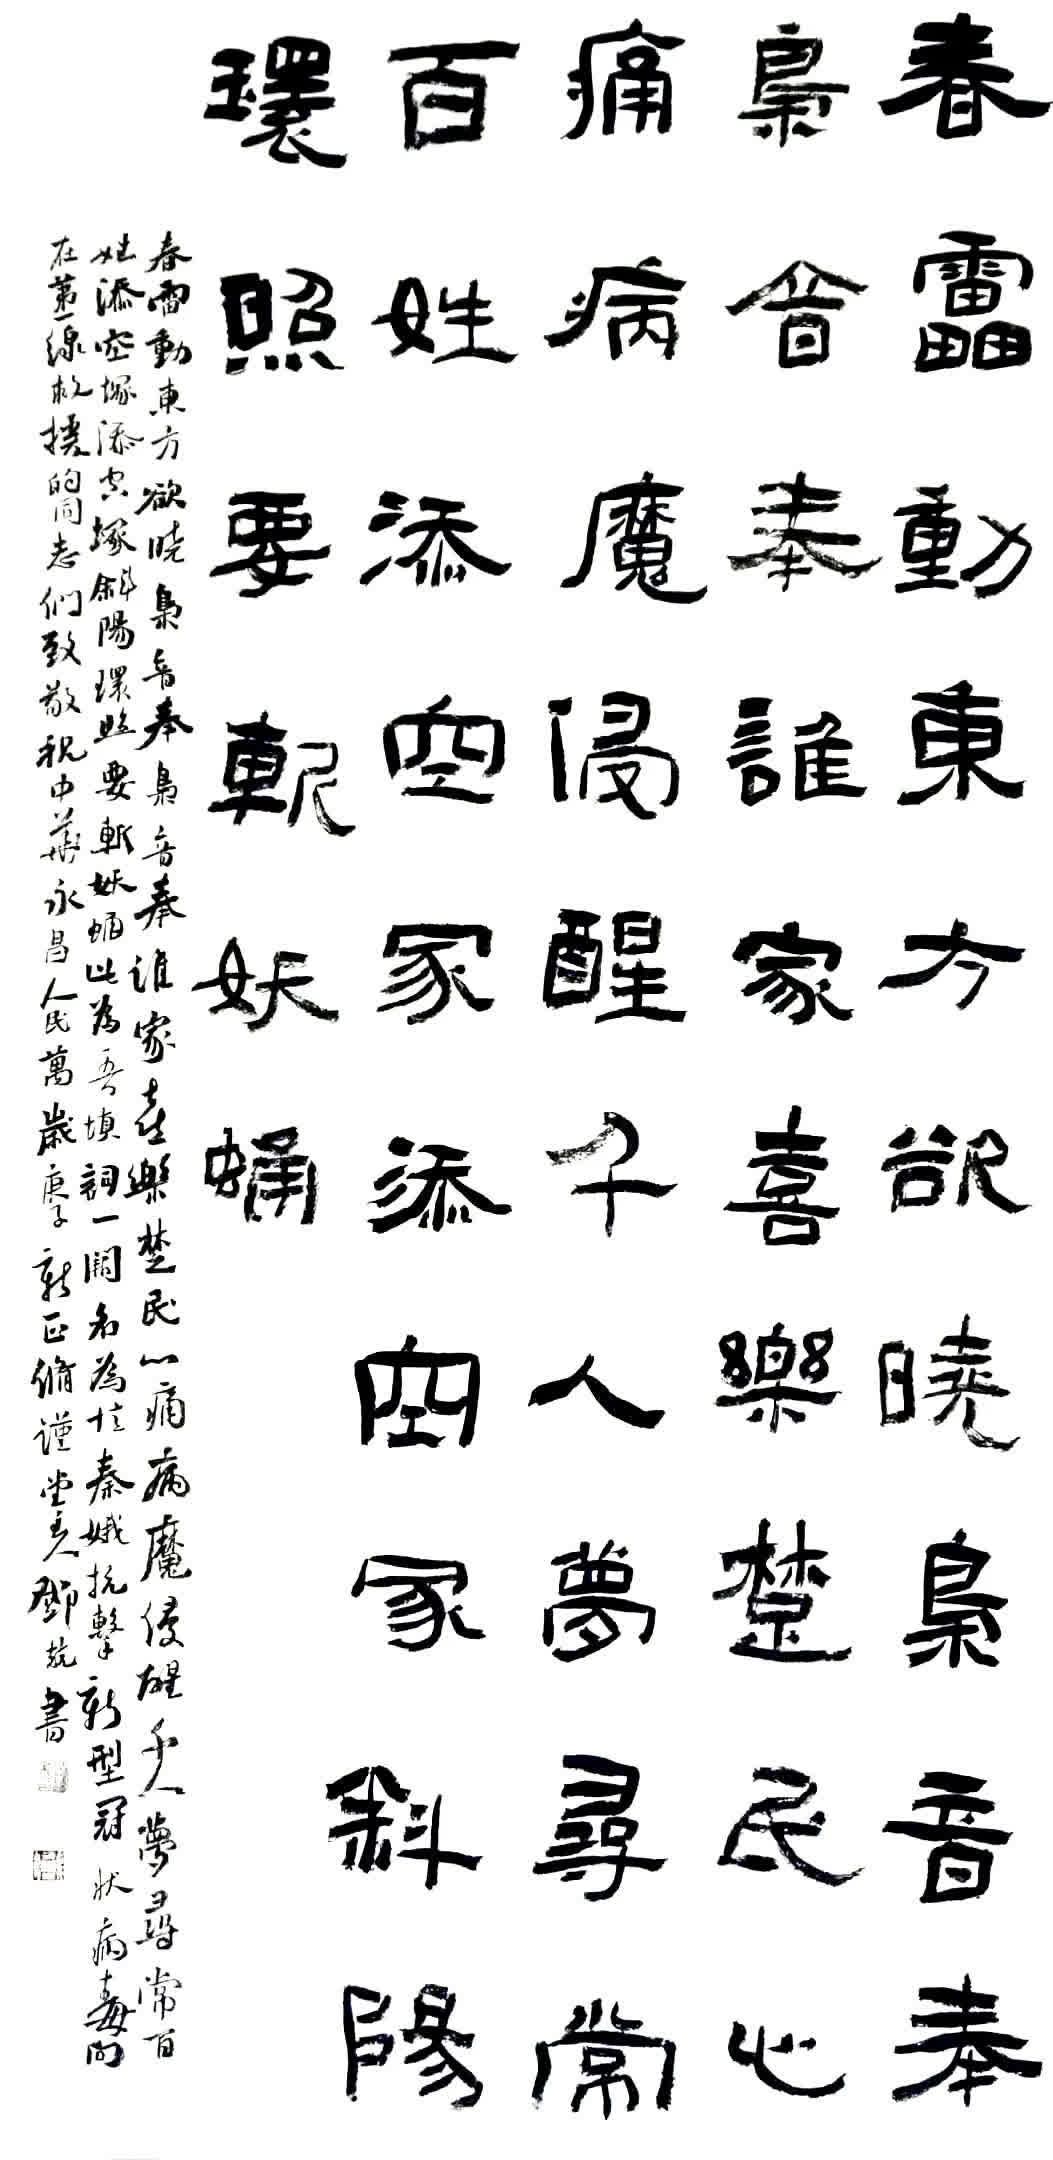 春雷動東方欲曉梟音奉
梟音奉誰家喜樂楚民心
痛病魔侵醒千人夢尋常
百姓添空冢添空冢斜陽
環照要斬妖蛹
春雷動東方欲曉梟音奉梟音奉誰家喜樂楚民心痛病魔侵醒千人夢尋常百
姓添空塚添空塚斜陽環照要斬妖蛹此為吾填詞一闋名為憶秦娥抗擊新型冠狀病毒向
在第一線救援的同志們致敬祝中華永昌人民萬歲庚子新正脩謹堂主人鄧兢書